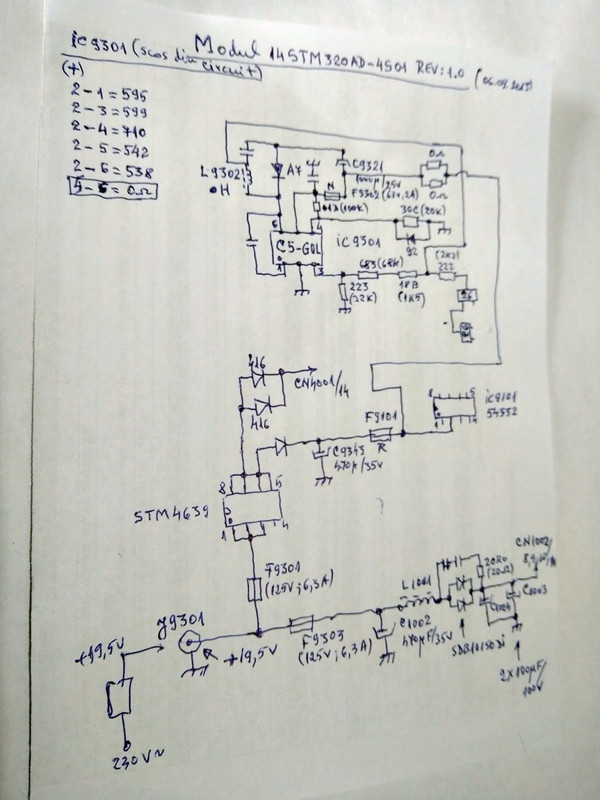 Modul 14STM320AD-4501 REV:1.0 (06.07.2023)
iC9301 (scos din circuit)
(+)
2-1 = 595
2-3 = 599
2-4 = 710
2-5 = 542
2-6 = 538
5-6 = 0Ω
L9302
0H
A7
C9321
1000µ/25V
N
F9302 (63V,2A)
(100K)
0Ω
0Ω
30C (20K)
92
6
4
C5-GQL
iC9301
1
3
683 (68K)
18B
(1K5)
(2K2)
222
223
(22K)
416
CN4001/14
416
F9101
R
C9343
470µF/35V
8
5
iC9101
54552
1
4
8
5
STM4639
1
4
F9301
(125V; 6,3A)
J9301
+19,5V
+19,5V
F9303
(125V; 6,3A)
230V~
L1001
C1002
470µF/35V
20R0
(20Ω)
CN1002/
C1003
2x100µF/
100V